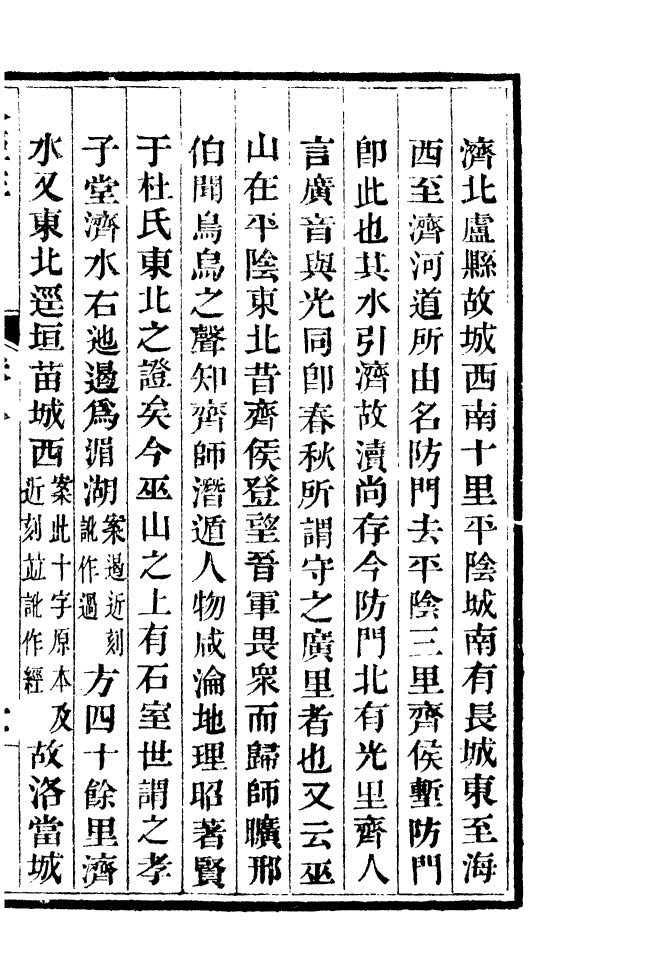 濟北盧縣故城西南十里平陰城南有長城東至海
西至濟河道所由名防門去平陰三里齊侯塹防門
卽此也其水引濟故瀆尚存今防門北有光里齊人
言廣音與光同卽春秋所謂守之廣里者也又云巫
山在平陰東北昔齊侯登望晉軍畏衆而歸師曠邢
伯聞烏烏之聲知齊師潛遁人物咸淪地理昭著賢
于杜氏東北之證矣今巫山之上有石室世謂之孝
子堂濟水右迆遏爲湄湖案遏近刻訛作過方四十餘里濟
水又東北逕垣苗城西案此十字原本及近刻竝訛作經故洛當城